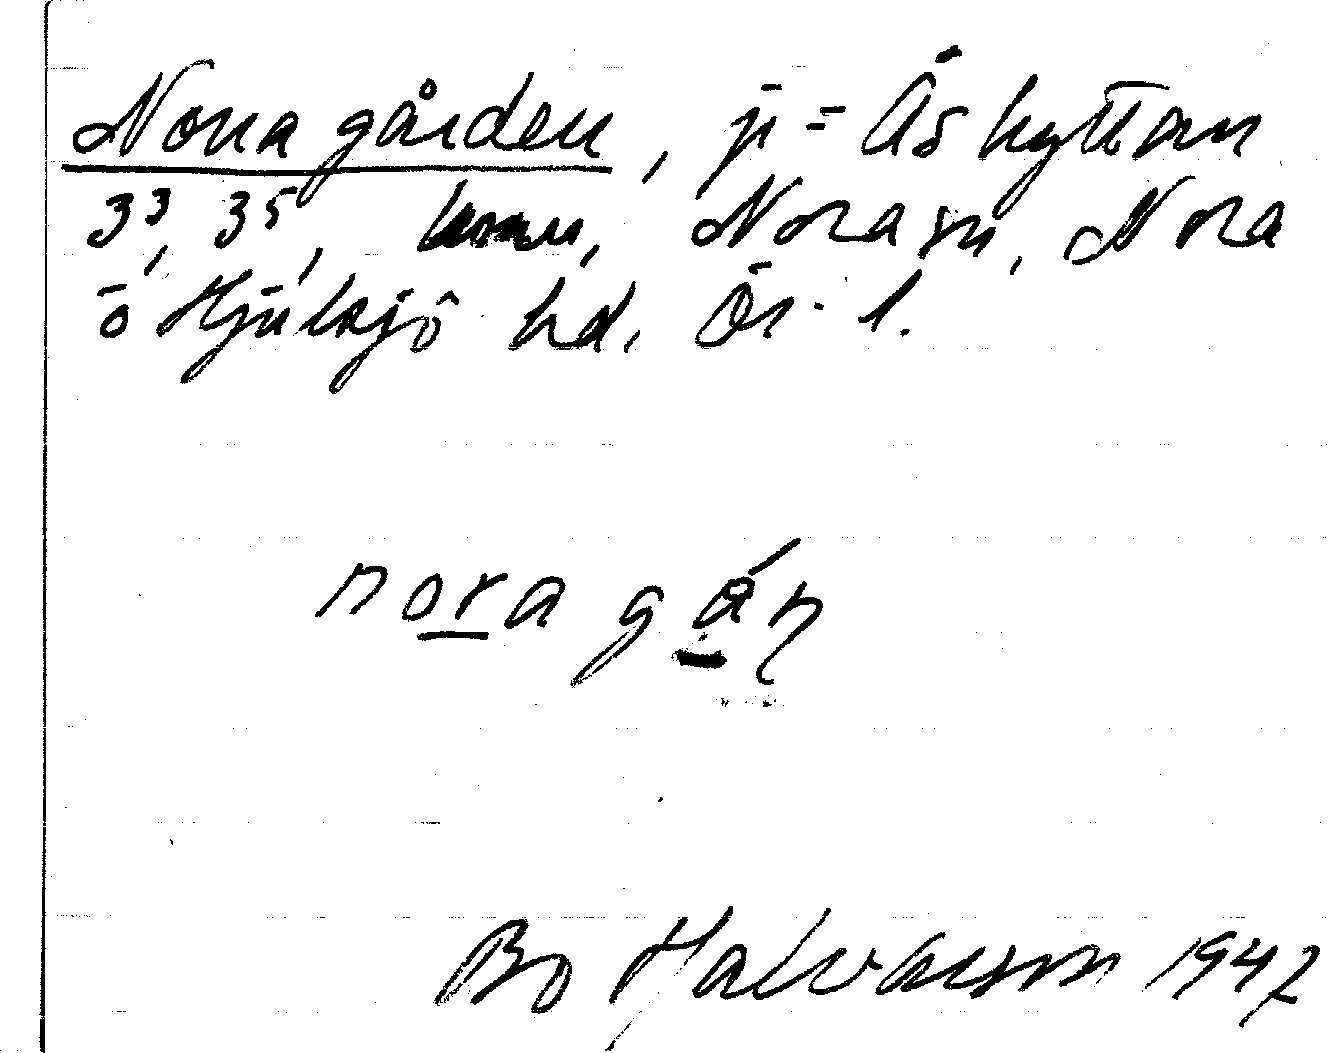 Noragården, ji = Åshyttan
3³, 3⁵, Nora sn, Nora
o Hjulsjö hd. Ör. l.
nora gáṇ
Bo Halvarson 1947